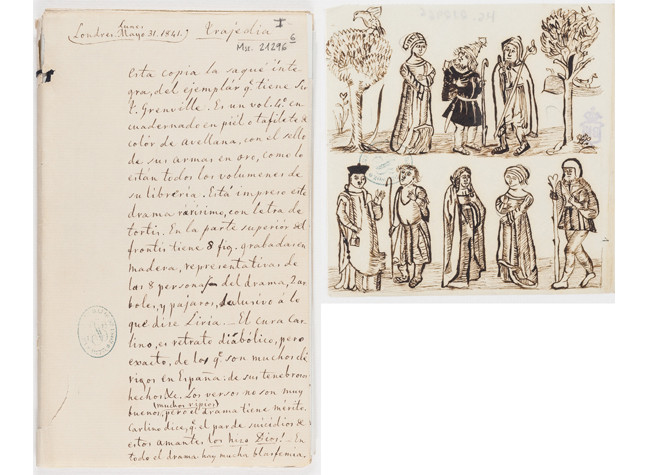 Londres, lunes Mayo 31, 1841. Trajedia I
Mss. 21296 6
esta copia la saqué ínte-
gra, del ejemplár q.e tiene Sir
T. Grenville. Es un vol. 4.º en
cuadernado en piel o tafilete de
colór de avellana, con el sello
de sus armas en oro, como lo
están todos los volumenes de
su librería. Está impreso este
drama rarísimo, con letra de
tortis. En la parte superiór del
frontis tiene 8 fig. grabadas en
madera, representativas de
las 8 personas del drama, 2 ar-
boles, y pájaros, alusivo á lo
que dice Liria.— El cura Car-
lino, es retrato diabólico, pero
exacto, de los q.e son muchos clé-
rigos en España: de sus tenebrosos
hechos &c. Los versos no son muy
buenos, (muchos ripios) pero el drama tiene mérito.
Carlino dice, q.e el par de suicidios de
estos amantes los hizo Dios!— En
todo el drama hay mucha blasfemia.